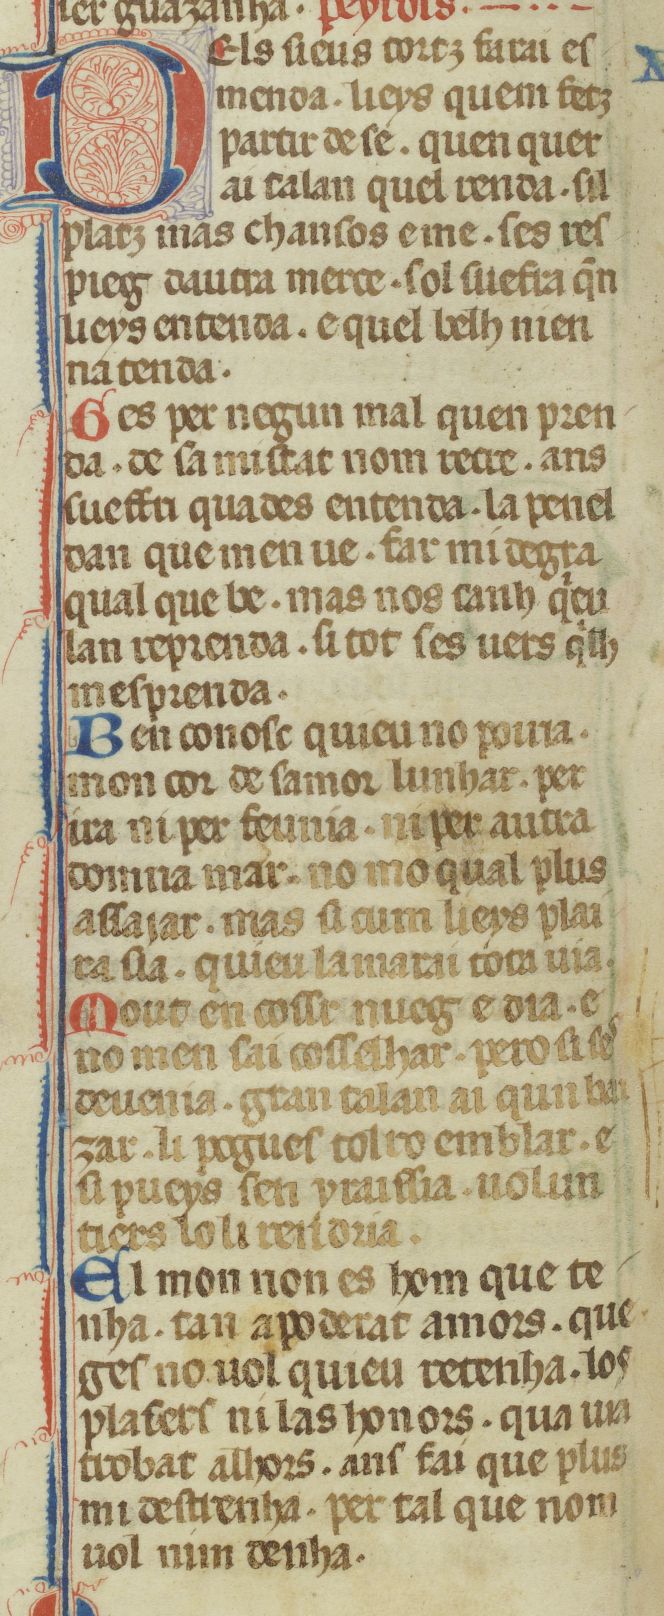 ier guazanha. peyrols.
Dels sieus tortz farai es
menda. lieys quem fetz
partir de se. quen quer
ai talan quel renda. sil
platz mas chansos e me. ses res
pieg dautra merce. sol suefra qn̄
lieys entenda. e quel belh nien
natenda.
Ges per negun mal quen pren
da. de samistat nom recre. ans
sueffri quades entenda. la penel
dan que men ve. far mi degra
qual que be. mas nos tanh q̓eu
lan reprenda. si tot ses uers q̓lh
mesprenda.
Ben conosc quieu no poiria.
mon cor de samor lunhar. per
ira ni per feunia. ni per autra
domna mar. no mo qual plus
assaiar. mas si cum lieys plai
ra sia. quieu lamarai tota uia.
Mout en cossir nueg e dia. e
no men sai cosselhar. pero si ses
deuenia. gran talan ai qun bai
zar. li pogues tolr o emblar. e
si pueys sen yraissia. uolun
tiers lo li rendria.
El mon non es hom que te
nha. tan apoderat amors. que
ges no uol quieu retenha. los
plasers ni las honors. qua uia
trobat alhors. ans fai que plus
mi destrenha. per tal que nom
uol nim denha.